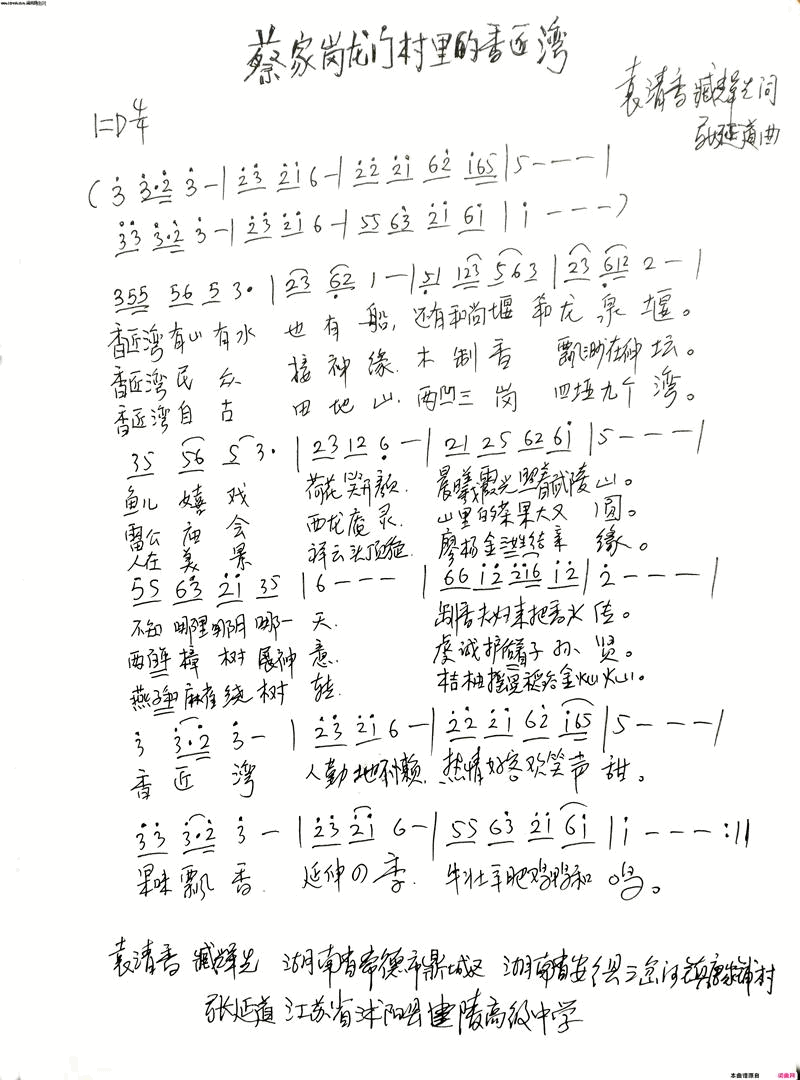 蔡家岗龙门村里的香匠湾
袁清香 臧辉先 词
张延道 曲
1=D 4/4
( 3 3·2 3 - | 23 21 6 - | 22 21 62 165 | 5 - - - |
33 3·2 3 - | 23 21 6 - | 55 63 21 61 | 1 - - - )
355 56 5 3· | 23 62 1 - | 51 123 563 | 23 612 2 - |
香匠湾有山有水 也有船, 还有和尚堰 和龙泉堰。
香匠湾民众 接神缘. 木制香 飘渺在神坛。
香匠湾自古 田地山. 两凹三岗 四垭九个湾。
35 56 5 3· | 23 12 6 - | 21 25 62 61 | 5 - - - |
鱼儿嬉戏 荷花笑开颜. 晨曦霞光照着武陵山。
雷公庙会 西龙庵灵. 山里的茶果大又圆。
人在美景 祥云头顶 结 缘。
55 63 21 35 | 6 - - - | 66 12 216 12 | 2 - - - |
不知哪里哪阴哪一天. 制香夫妇来把香火传。
西 樟树展神意. 虔诚护 子孙贤。
燕子和麻雀绕树转. 桔柚 稻谷金灿灿。
3 3·2 3 - | 23 21 6 - | 22 21 62 165 | 5 - - - |
香匠湾 人勤地不懒. 热情好客欢笑声甜。
33 3·2 3 - | 23 21 6 - | 55 63 21 61 | 1 - - - :||
果味飘香. 延伸の季. 牛壮羊肥鸡鸭和鸣。
袁清香 臧辉先 湖南省常德市鼎城区 湖南省安 县 河镇 铺村
张延道 江苏省沭阳县建陵高级中学
本曲谱源自 词曲网